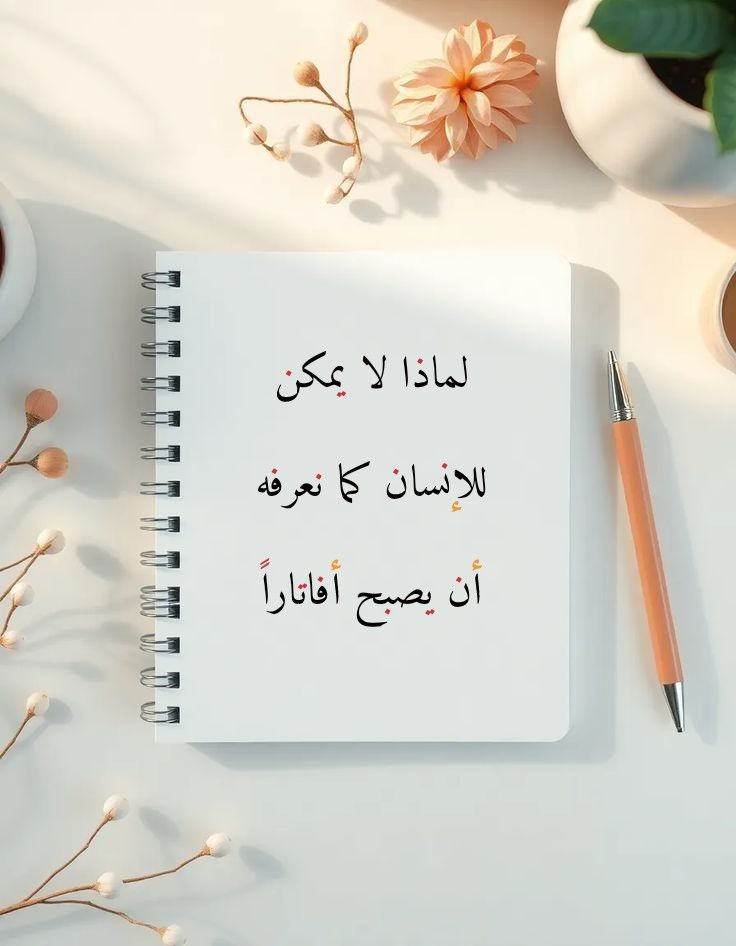 لماذا لا يمكن
للإنسان كما نعرفه
أن يصبح أفاتاراً